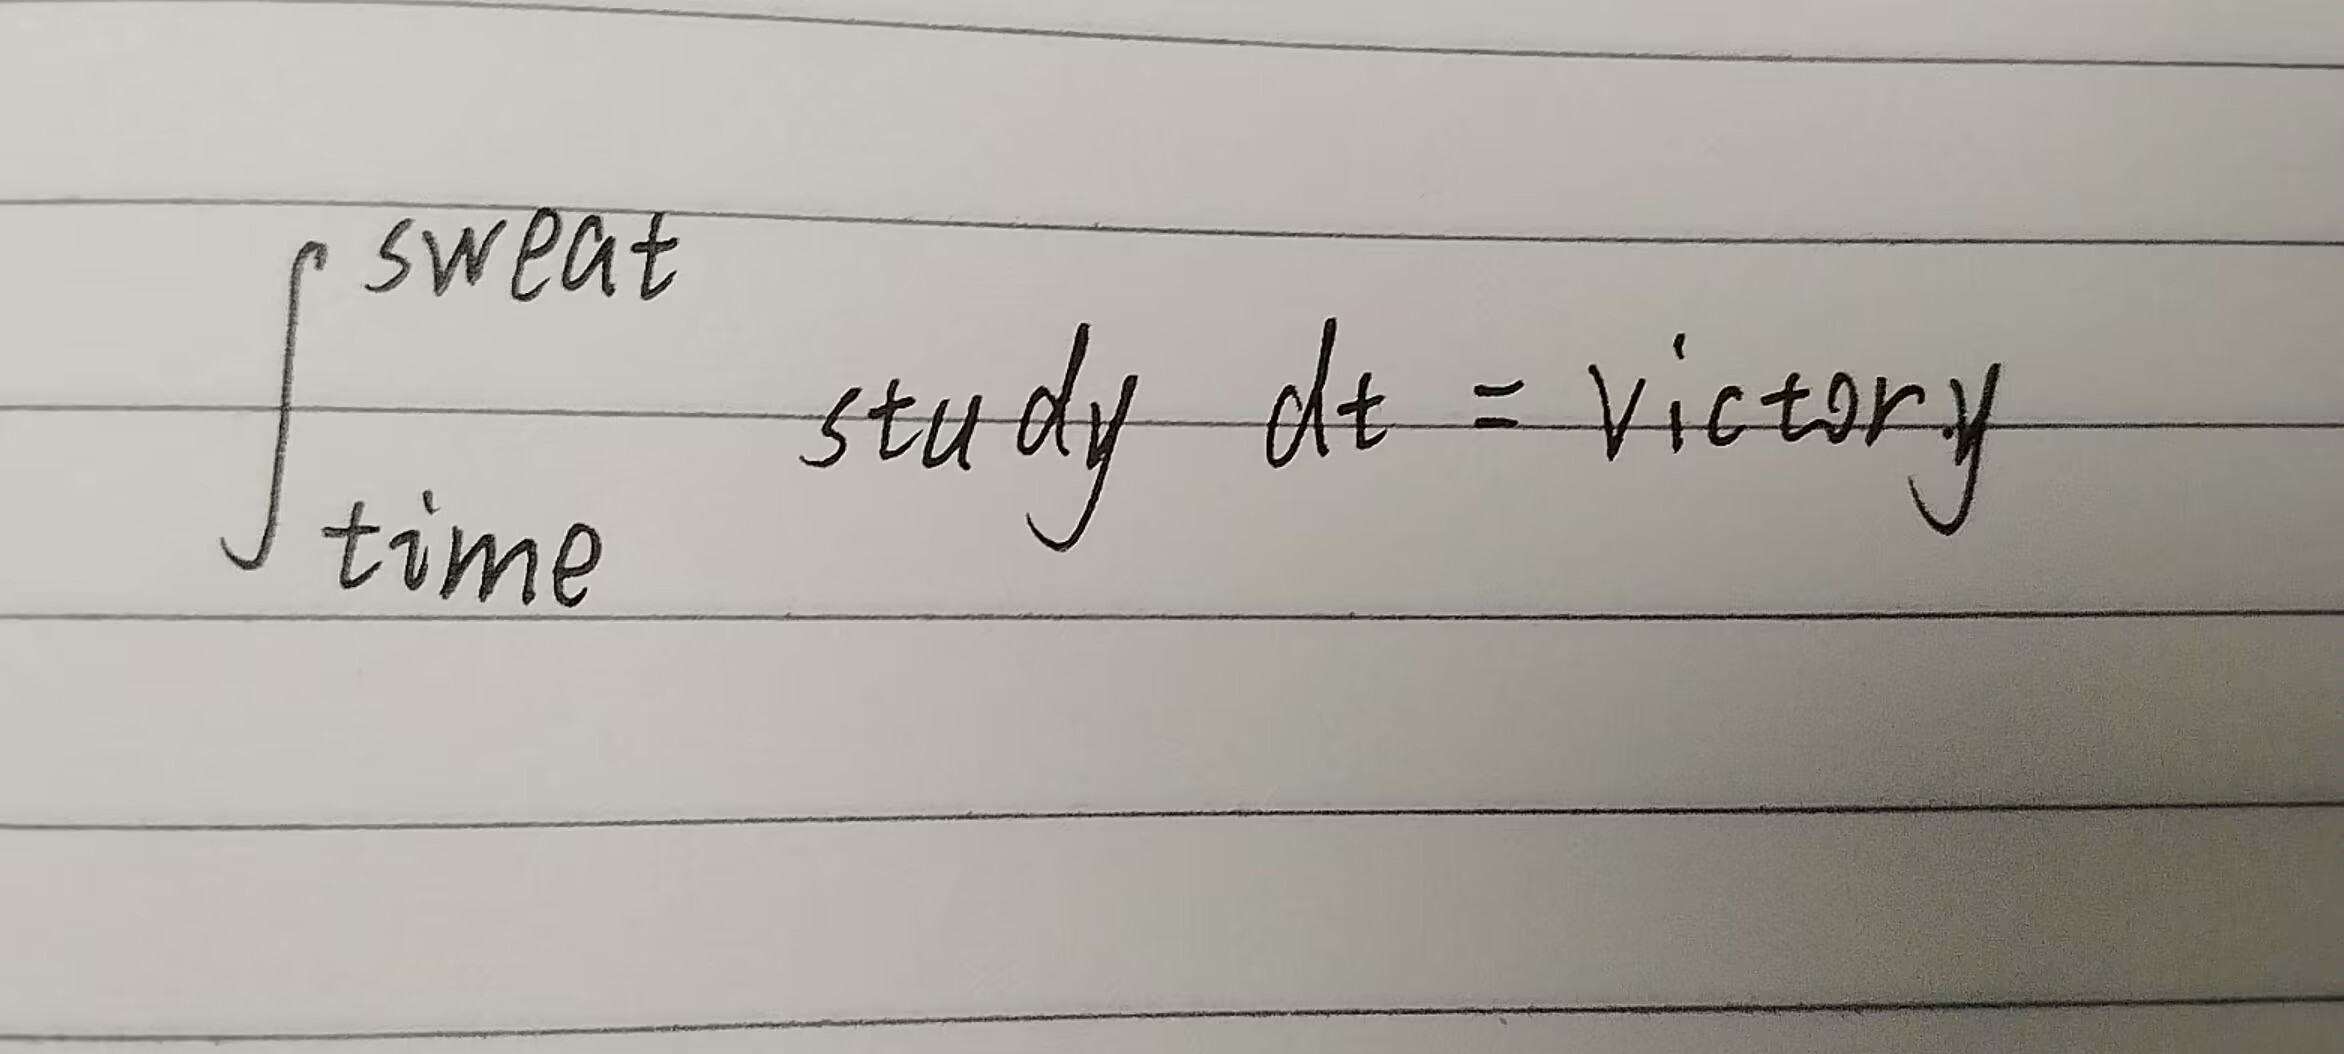 ∫_time^sweat study dt = victory